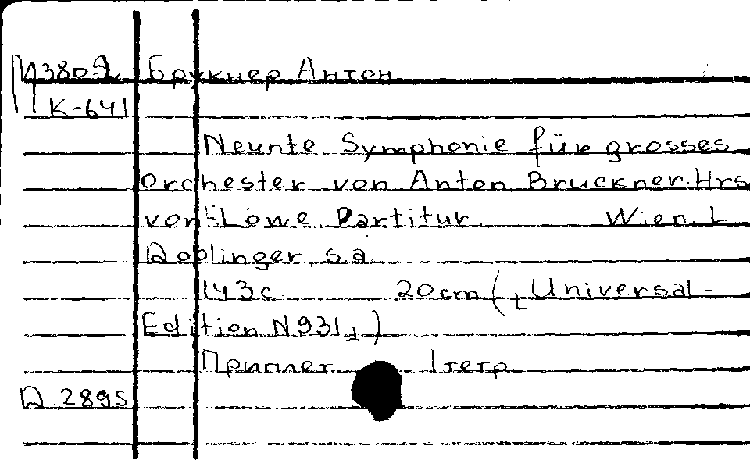 И3809 Брукнер Антон
К-641
Neunte Symphonie für grosses
Orchester von Anton Bruckner. Hrs
von Löwe Partitur Wien. L
Doblinger, s.a
143c 20cm (Universal-
Edition N931)
Приплет 1 тетр
D 2895